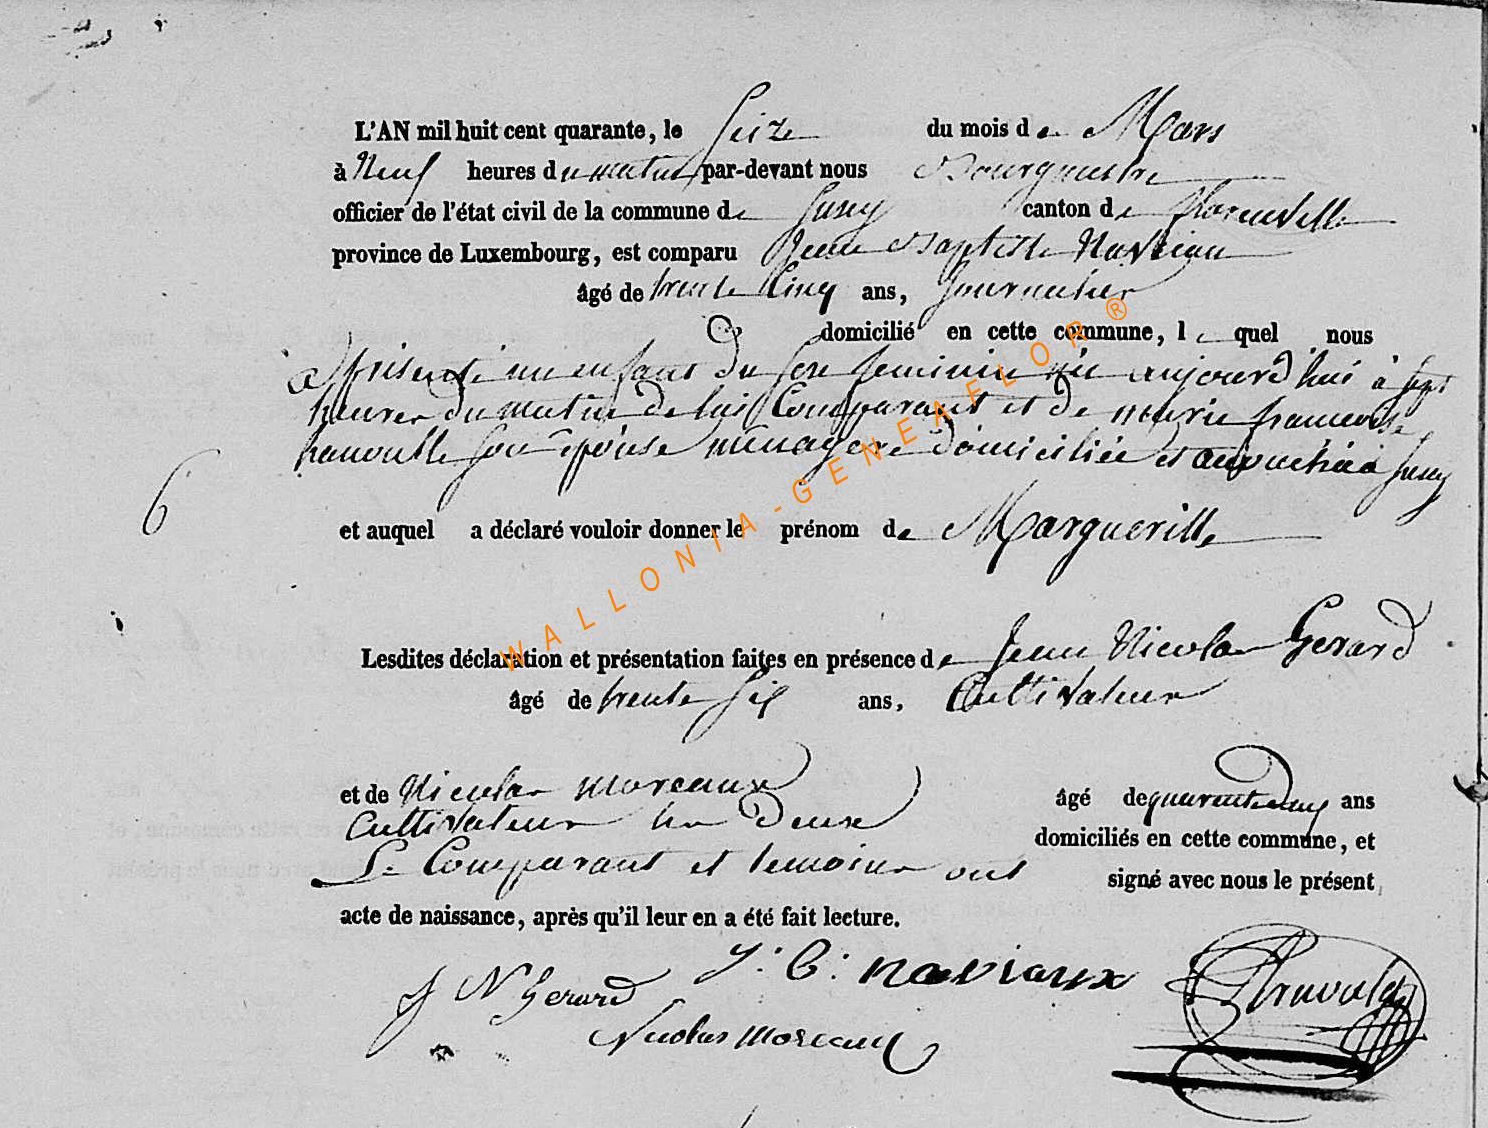 L'AN mil huit cent quarante, le Seize du mois de Mars
à Neuf heures du matin par-devant nous Bourguestre
officier de l'état civil de la commune de Jusey canton de florenville
province de Luxembourg, est comparu Jean Baptiste Naviau
âgé de trente Cinq ans, Journalier
domicilié en cette commune, le quel nous
a présenté un enfant du sexe feminin née aujourd'hui à sept
heures du matin de lui Comparant et de marie francoise
son épouse menagere domiciliée et à
6
et auquel a déclaré vouloir donner le prénom de Margueritte
Lesdites déclaration et présentation faites en présence de Jean Nicolas Gerard
âgé de trente six ans, Cultivateur
et de Nicolas moreaux âgé de quarente ans
Cultivateur deux domiciliés en cette commune, et
Le Comparant et temoins ont signé avec nous le présent
acte de naissance, après qu'il leur en a été fait lecture.
J: B: naviaux
J N Gerard
Nicolas moreaux
WALLONIA-GENEAFLOR ®